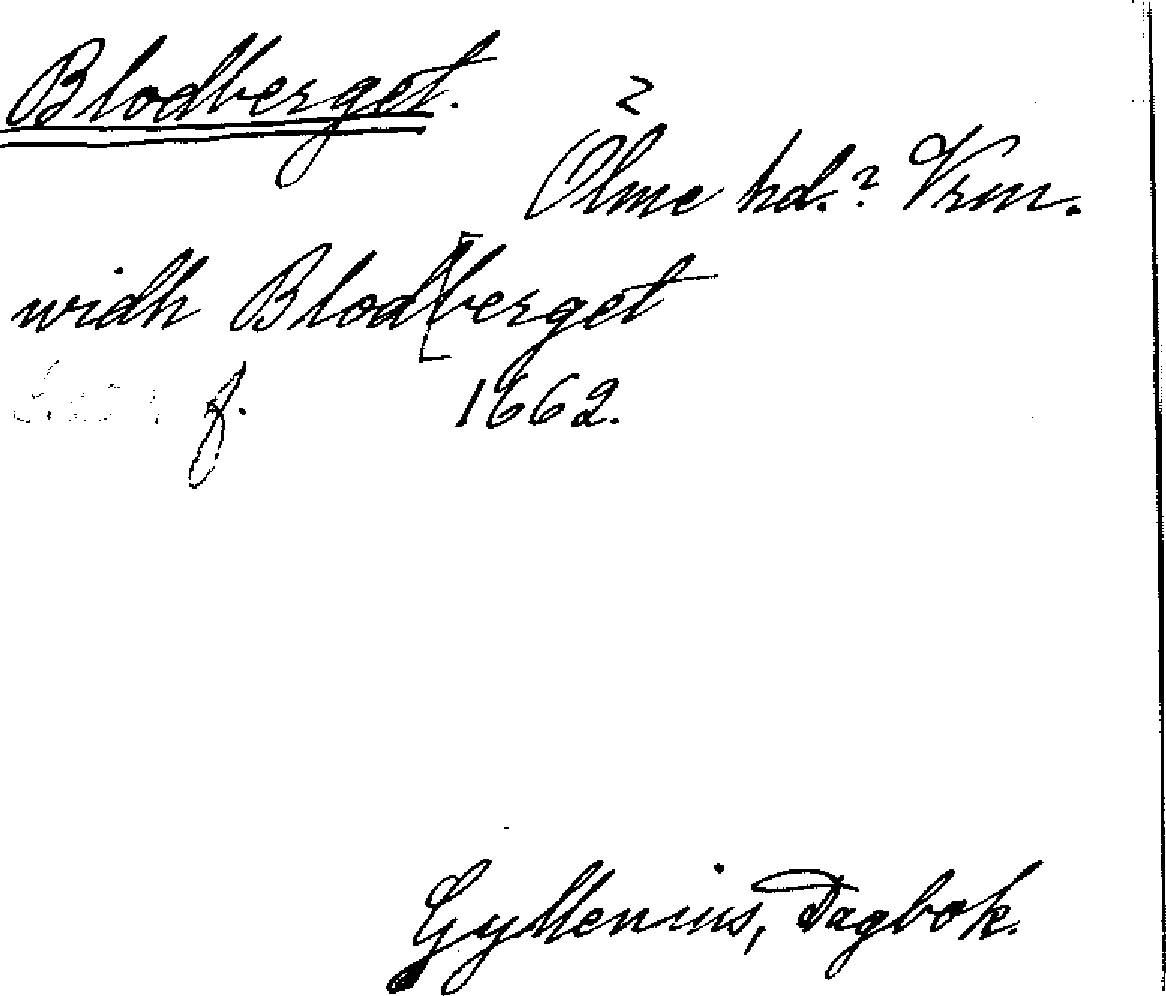 Blodberget.
?
Ölme hd.? Vrm.
widh Blod[berget
f. 1662.
Gyllenius, Dagbok.